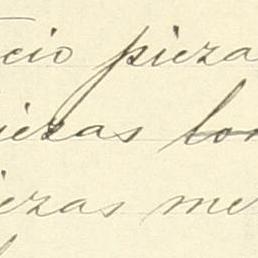 cio pieza
iezas
iezas me